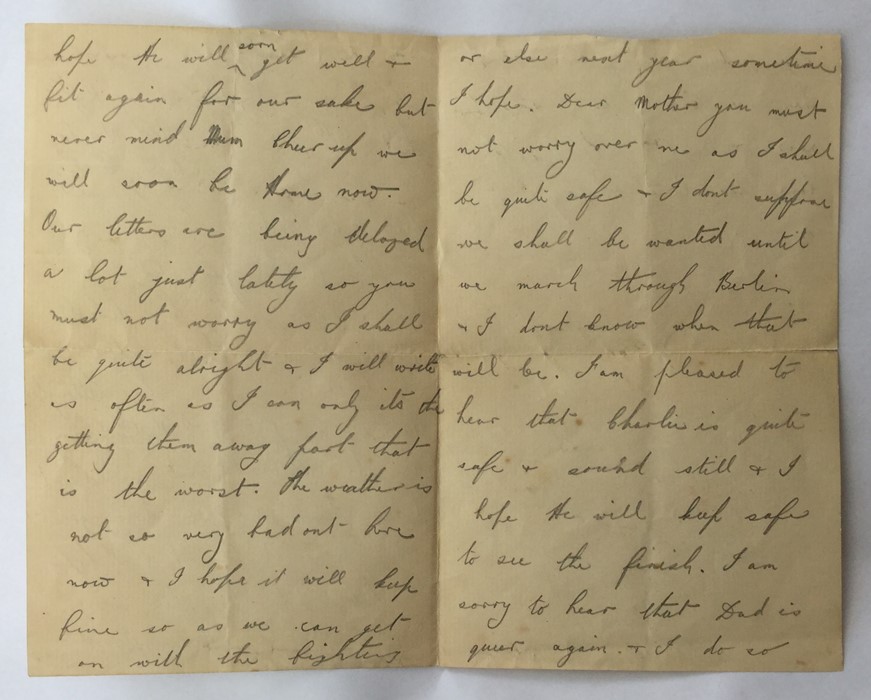 hope He will soon get well &
fit again for our sake but
never mind Mum Cheer up we
will soon be Home now.
Our letters are being delayed
a lot just lately so you
must not worry as I shall
be quite alright & I will write
as often as I can only its the
getting them away part that
is the worst. The weather is
not so very bad out here
now & I hope it will keep
fine so as we can get
on with the fighting
or else next year sometime
I hope. Dear Mother you must
not worry over me as I shall
be quite safe & I dont suppose
we shall be wanted until
we march through Berlin
& I dont know when that
will be. I am pleased to
hear that Charlie is quite
safe & sound still & I
hope He will keep safe
to see the finish. I am
sorry to hear that Dad is
queer again. & I do so